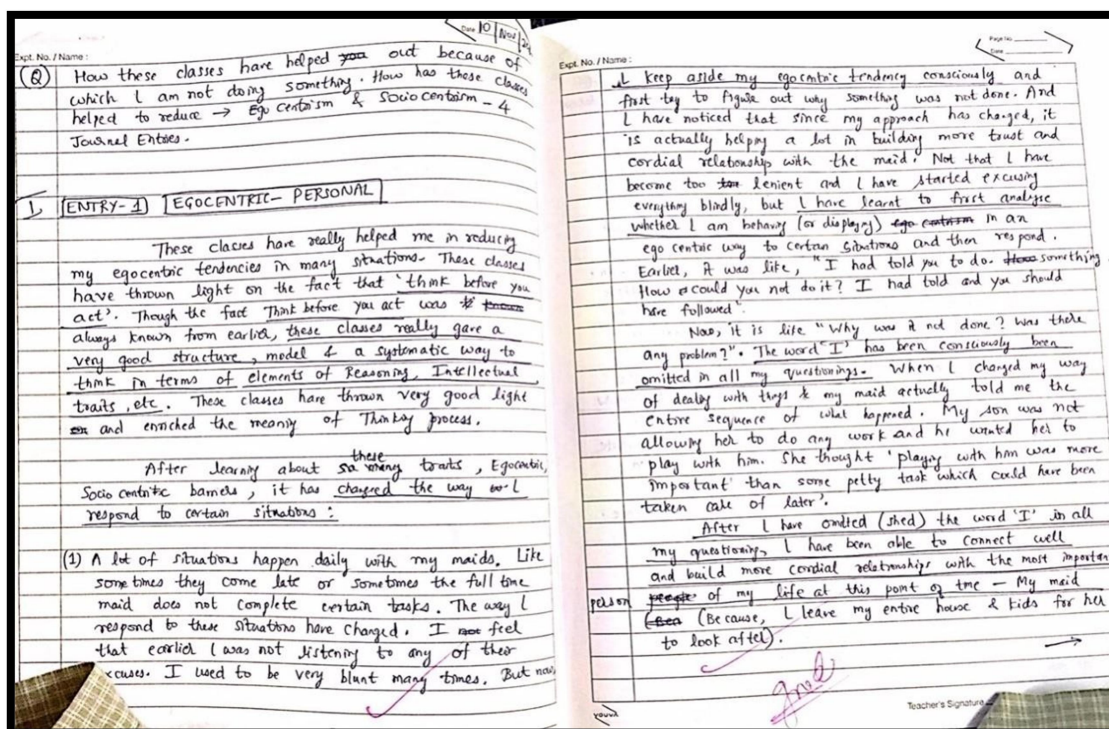 Date 10 Nov
Expt. No. / Name :
(Q) How these classes have helped you out because of
which I am not doing something. How has these classes
helped to reduce → Ego centrism & Socio centrism - 4
Journal Entries.
1, ENTRY-1 EGOCENTRIC- PERSONAL
These classes have really helped me in reducing
my egocentric tendencies in many situations. These classes
have thrown light on the fact that 'think before you
act'. Though the fact Think before you act was known
always known from earlier, these classes really gave a
very good structure, model & a systematic way to
think in terms of elements of Reasoning, Intellectual
traits, etc. These classes have thrown very good light
and enriched the meaning of Thinking process.
After learning about so many these traits, Egocentric,
Socio centric barriers, it has changed the way I
respond to certain situations :
(1) A lot of situations happen daily with my maids. Like
sometimes they come late or sometimes the full time
maid does not complete certain tasks. The way I
respond to these situations have changed. I not feel
that earlier I was not listening to any of their
excuses. I used to be very blunt many times. But now,
Page No.
Date
Expt. No. / Name :
I keep aside my egocentric tendency consciously and
first try to figure out why something was not done. And
I have noticed that since my approach has changed, it
is actually helping a lot in building more trust and
cordial relationship with the maid. Not that I have
become too lenient and I have started excusing
everything blindly, but I have learnt to first analyse
whether I am behaving (or displaying) ego centrism in an
ego centric way to certain situations and then respond.
Earlier, it was like, "I had told you to do. something.
How could you not do it? I had told and you should
have followed".
Now, it is like "Why was it not done? Was there
any problem?". The word 'I' has been consciously been
omitted in all my questionings. When I changed my way
of dealing with things & my maid actually told me the
entire sequence of what happened. My son was not
allowing her to do any work and he wanted her to
play with him. She thought 'playing with him was more
important than some petty task which could have been
taken care of later'.
After I have omitted (shed) the word 'I' in all
my questioning, I have been able to connect well
and build more cordial relationships with the most important
person people of my life at this point of time – My maid
(Because, I leave my entire house & kids for her
to look after).
youva
Teacher's Signature